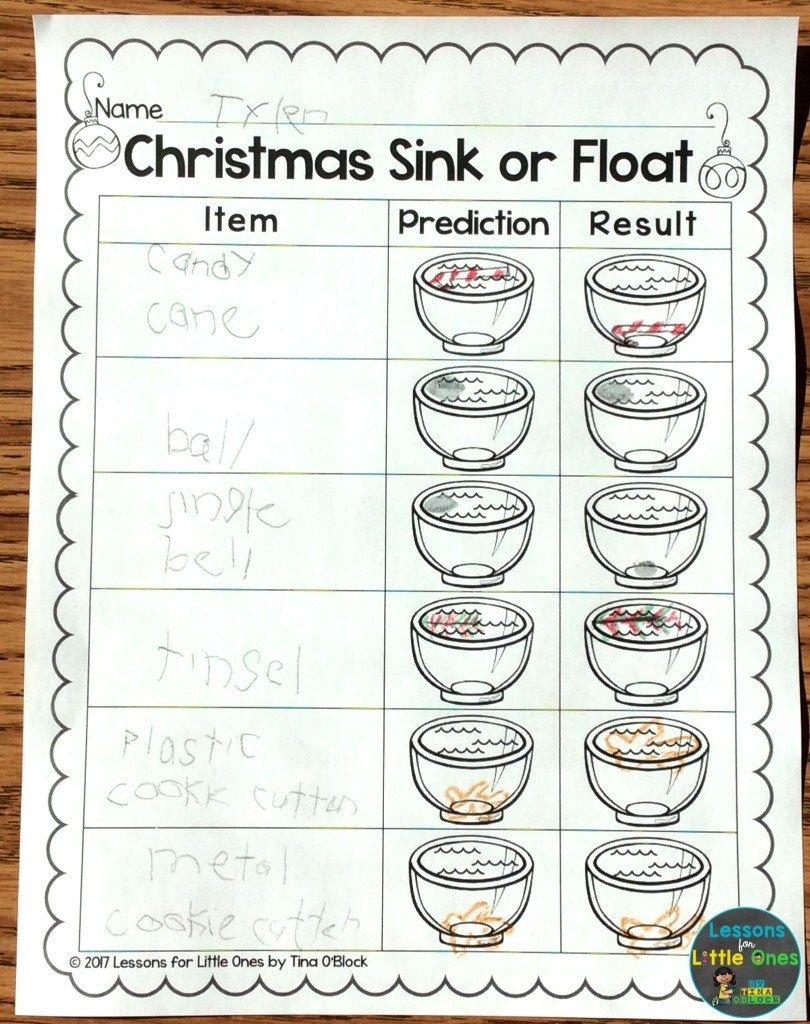 Name Tyler
Christmas Sink or Float
Item Prediction Result
candy
cane
ball
jingle
bell
tinsel
plastic
cookie cutter
metal
cookie cutter
© 2017 Lessons for Little Ones by Tina O'Block
Lessons
for
Little Ones
BY
TINA
O'BLOCK